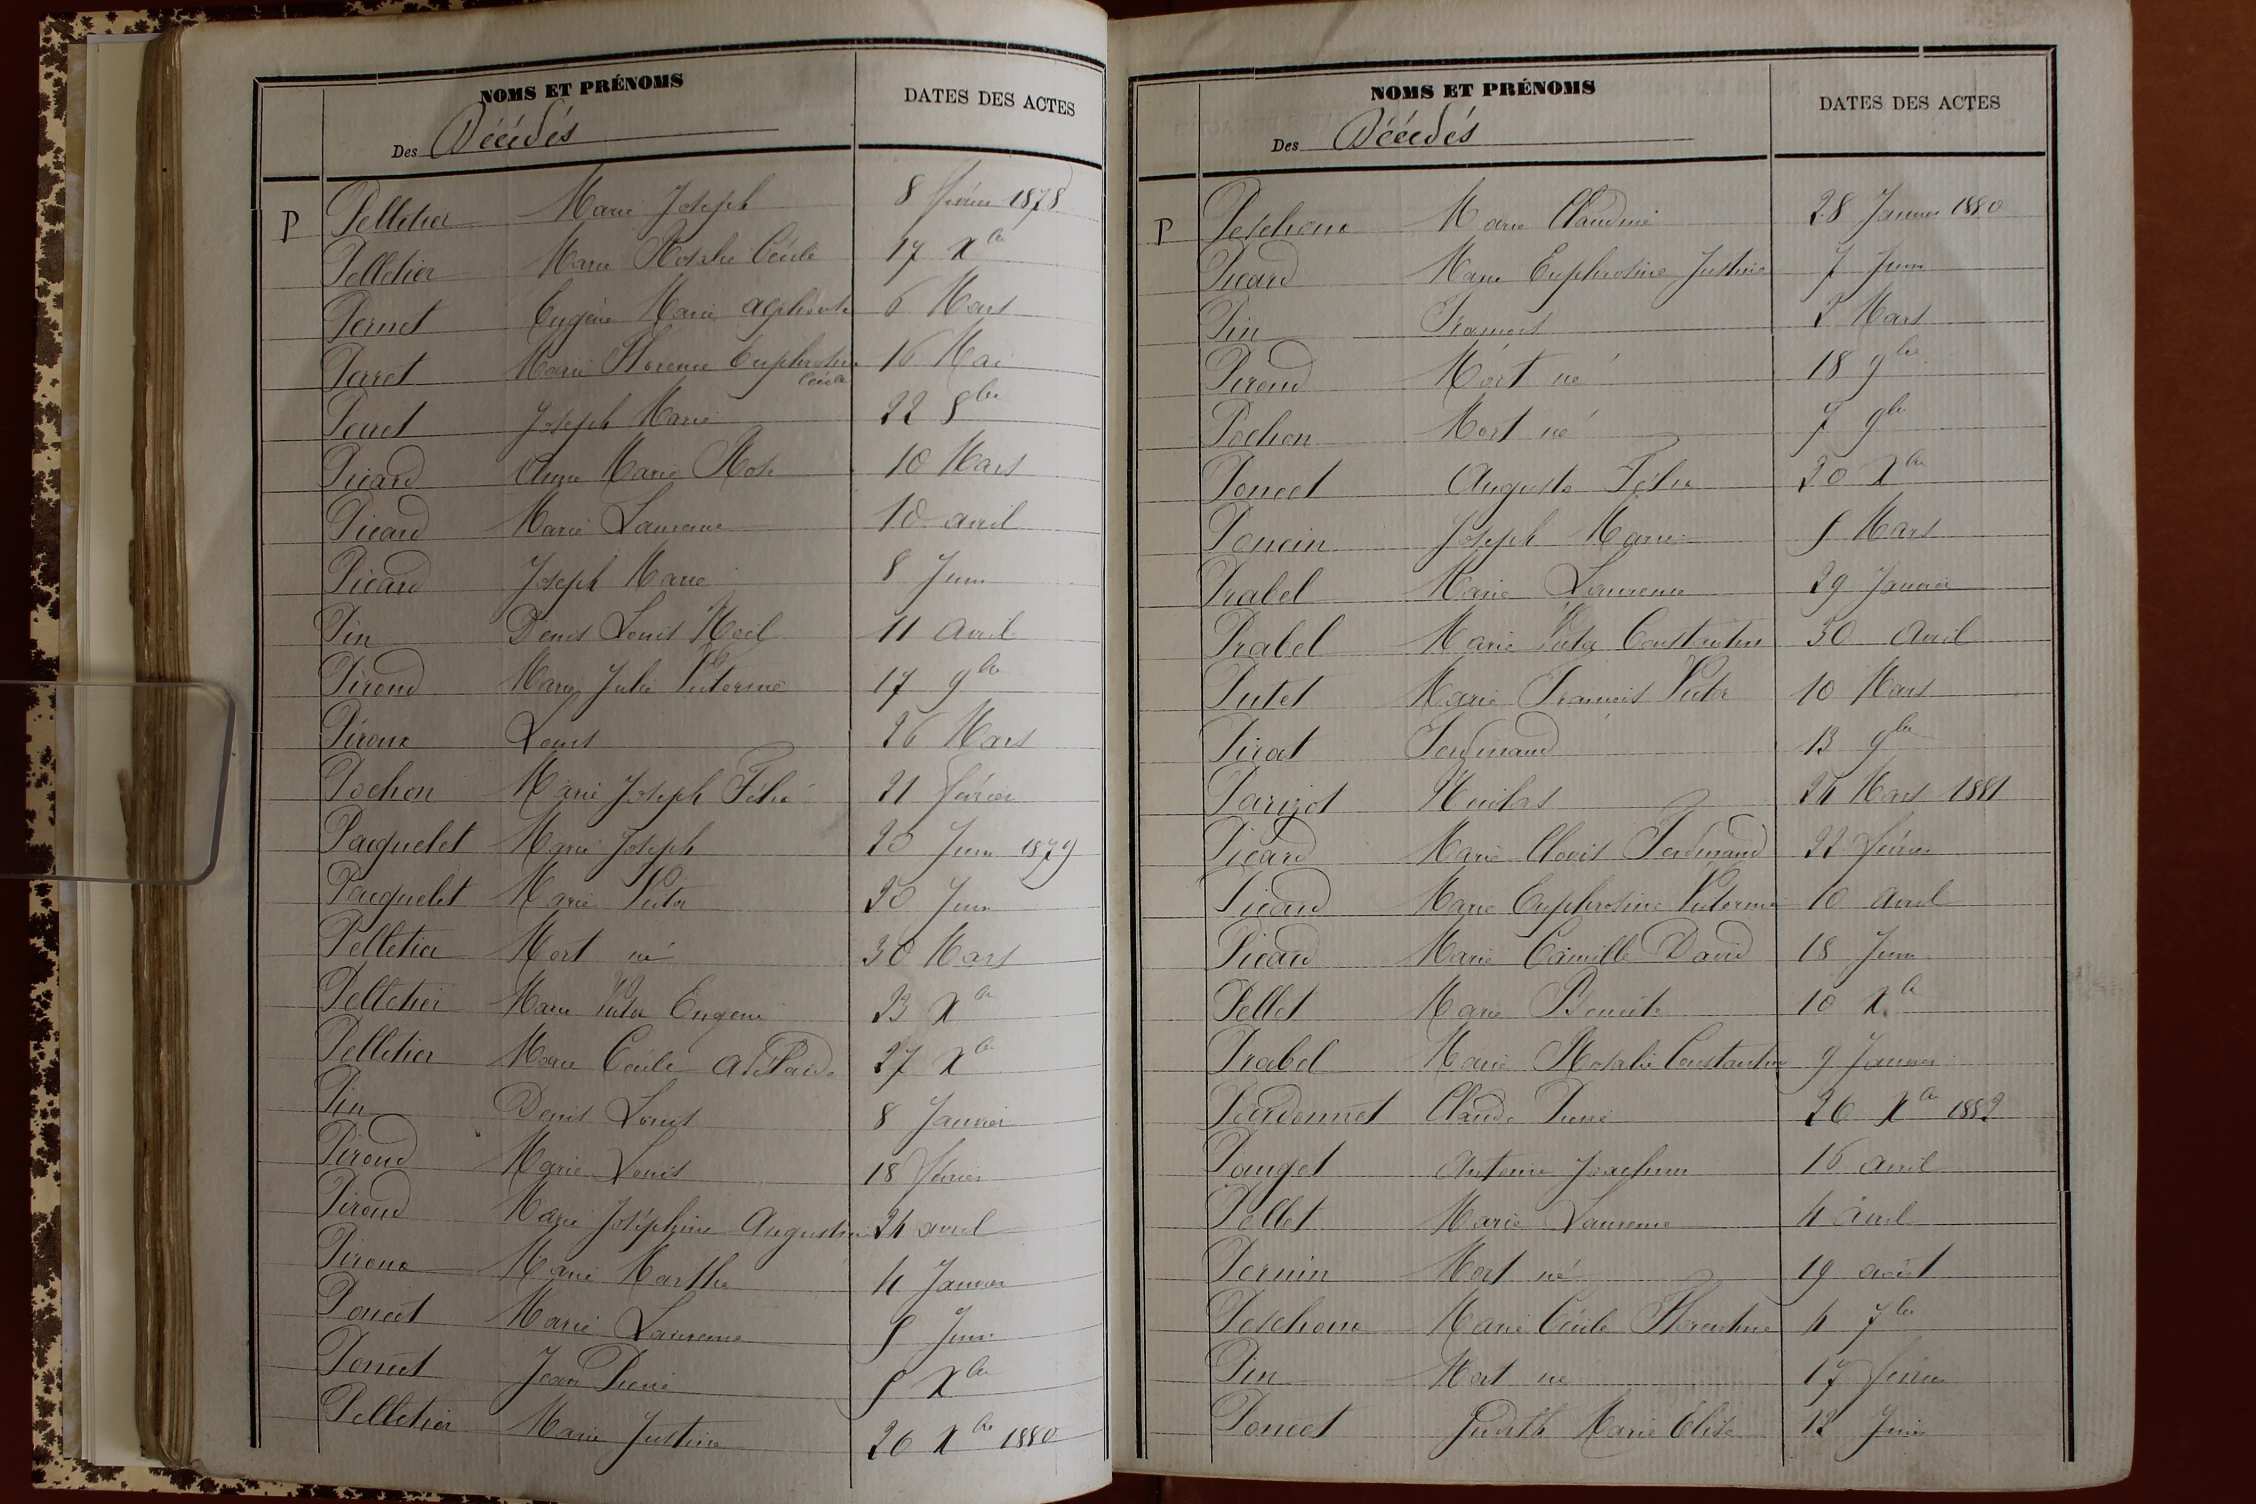 NOMS ET PRÉNOMS
DATES DES ACTES
Des Décédés
P
Pelletier Marie Joseph 8 février 1878
Pelletier Marie Rosalie Cécile 17 Xbre
Pernet Eugène Marie Alphonse 6 Mars
Perret Marie Florence Euphrosine 16 Mai
Cécile
Perret Joseph Marie 22 8bre
Picard Anne Marie Rose 10 Mars
Picard Marie Laurence 10 avril
Picard Joseph Marie 8 Juin
Pin Denis Louis Noël 11 Avril
Piroud Marie Julie Victorine 17 9bre
Piroux Louis 26 Mars
Pochon Marie Joseph Félix 21 février
Paiquelet Marie Joseph 20 Juin 1879
Paiquelet Marie Victor 20 Juin
Pelletier Mort né 30 Mars
Pelletier Marie Victor Eugène 23 Xbre
Pelletier Marie Cécile Adélaïde 27 Xbre
Pin Denis Louis 8 Janvier
Piroud Marie Louis 18 février
Piroud Marie Joséphine Augustine 24 avril
Piroux Marie Marthe 4 Janvier
Poncet Marie Laurence 8 Juin
Poncet Jean Pierre 8 Xbre
Pelletier Marie Justine 26 Xbre 1880
NOMS ET PRÉNOMS
DATES DES ACTES
Des Décédés
P
Peschoux Marie Claudine 28 Janvier 1880
Picard Marie Euphrosine Justine 7 Juin
Pin François 2 Mars
Piroud Mort né 18 9bre
Pochon Mort né 7 9bre
Poncet Auguste Félix 20 Xbre
Poncin Joseph Marie 8 Mars
Prabel Marie Laurence 29 Janvier
Prabel Marie Victor Constantin 30 Avril
Putet Marie François Victor 10 Mars
Pirat Ferdinand 13 9bre
Parizot Nicolas 24 Mars 1881
Picard Marie Clovis Ferdinand 22 février
Picard Marie Euphrosine Victorine 10 avril
Picard Marie Camille David 18 Juin
Pellet Marie Benoite 10 Xbre
Prabel Marie Rosalie Constantine 9 Janvier
Pardonnet Claude Pierre 26 Xbre 1882
Pauget Antoine Joachim 16 avril
Pellet Marie Laurence 4 avril
Pernin Mort né 19 août
Peschoux Marie Cécile Florentine 4 7bre
Pin Mort né 17 février
Poncet Judith Marie Elise 12 Juin